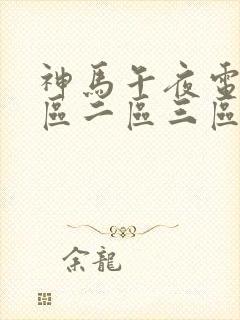 神馬午夜電
區二區三區
余龍